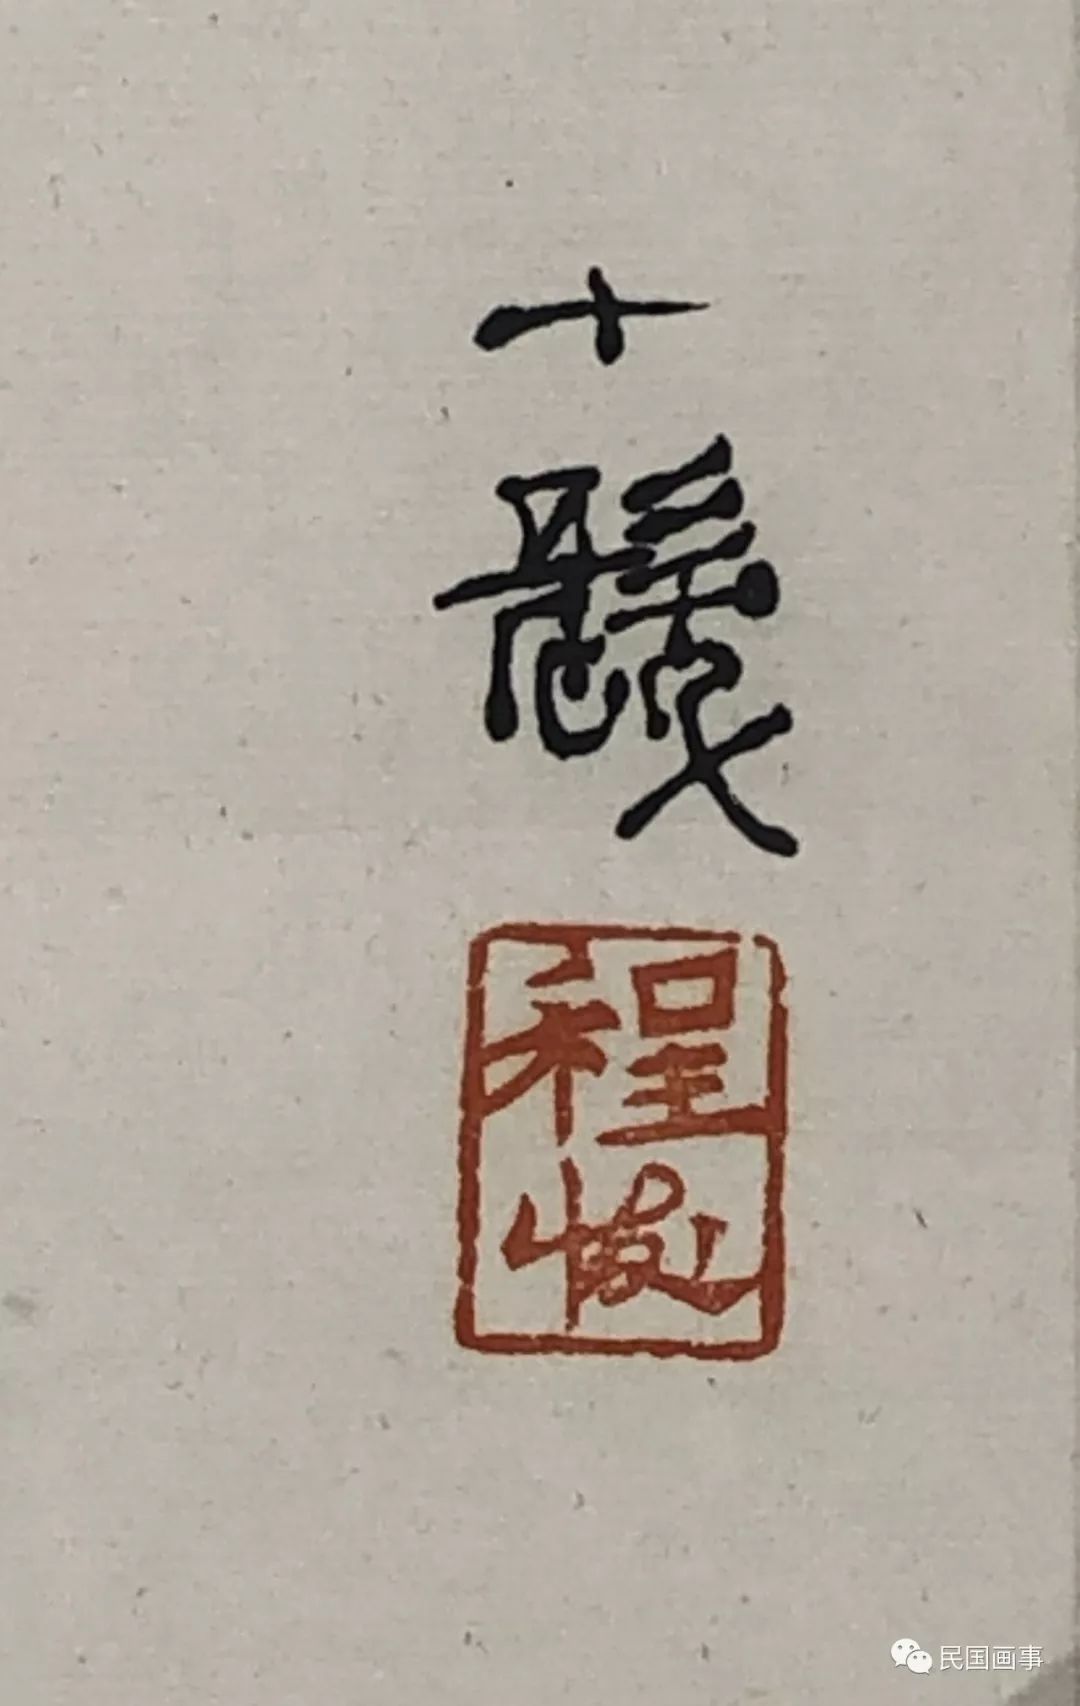 十髮
程
民国画事